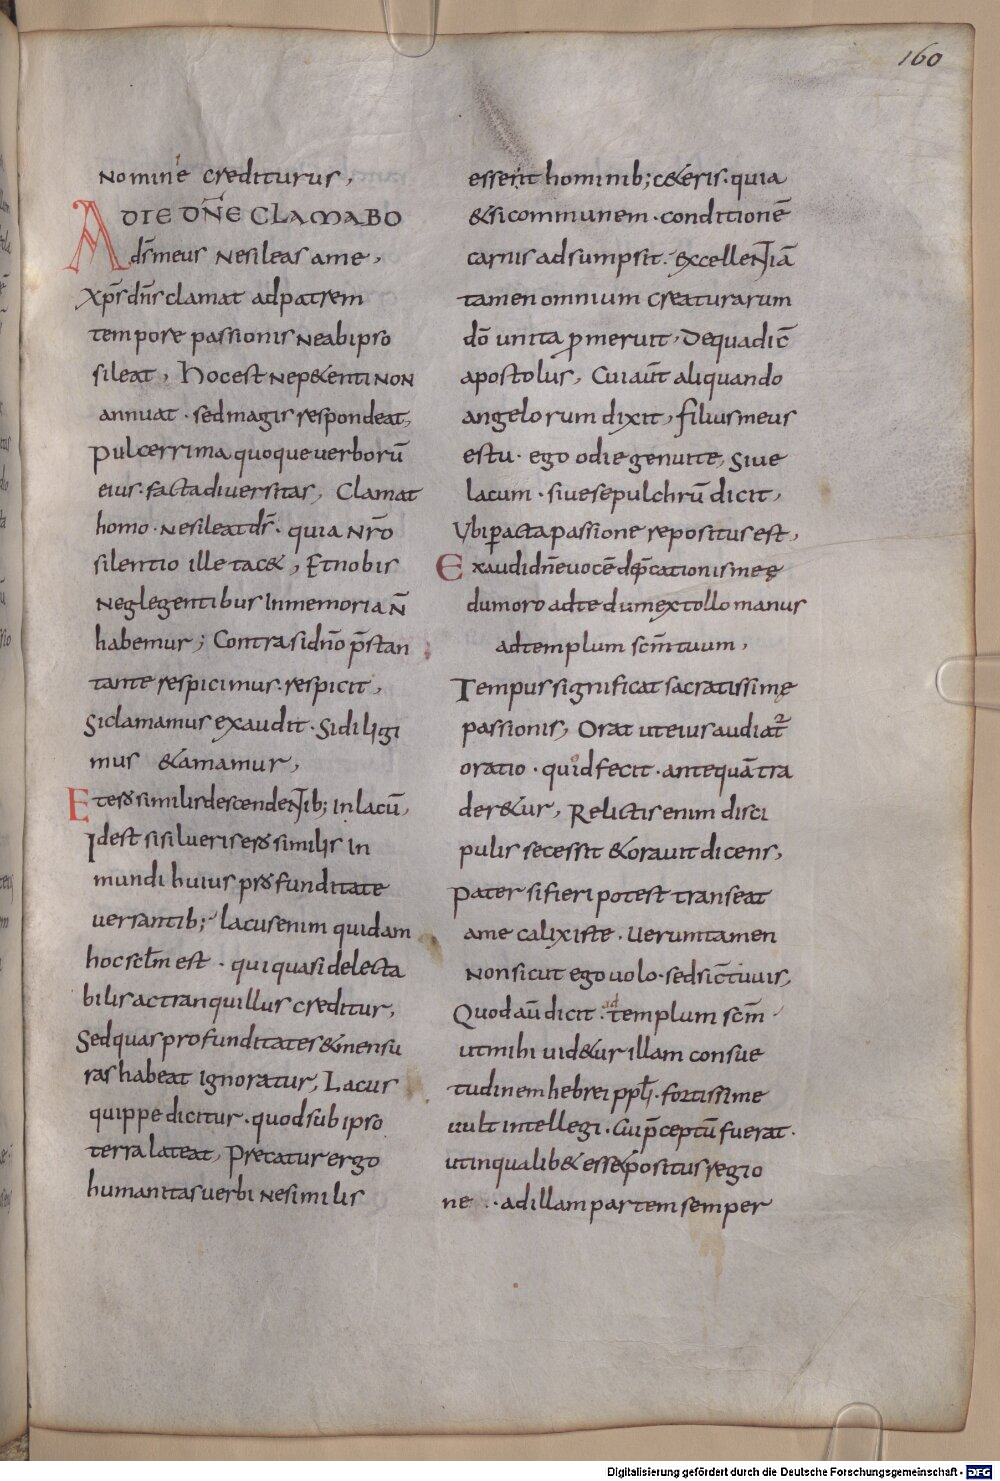 160
nomine crediturus,
A DTE DN̄E CLAMABO
ds̄ meus nesileas ame,
xp̄s dn̄s clamat adpatrem
tempore passionis neabipso
sileat, hocest nep&enti non
annuat · sed magis respondeat,
pulcerrima quoque uerborū
eius · facta diuersitas, Clamat
homo · nesileat ds̄ · quia nr̄o
silentio ille tac&, Et nobis
neglegentibus Inmemoria n̄
habemur; Contra si dn̄o p̄stan
tante respicimus · respicit,
Siclamamus exaudit · Sidiligi
mus &amamur,
Et ero similis descendentib; in lacū,
Idest sisilueris ero similis in
mundi huius profunditate
uersantib; lacus enim quidam
hoc sc̄lm est · qui quasi delecta
bilis ac tranquillus creditur,
Sed quas profunditates &mensu
ras habeat ignoratur, Lacus
quippe dicitur · quod sub ipso
terra lateat, Precatur ergo
humanitas uerbi nesimilis
esserit hominib; c&eris · quia
&si communem · conditionē
carnis adsumpsit · excellentiā
tamen omnium creaturarum
dō unita ꝓmeruit, De qua dic̄
apostolus, Cui aūt aliquando
angelorum dixit, filius meus
es tu · ego odie genui te, Siue
lacum · siue sepulchrū dicit,
Vbi ꝑacta passione repositus est,
Exaudi dn̄e uocē dep̄cationis meę
dum oro ad te dum extollo manus
ad templum scm̄ tuum,
Tempus significat sacratissimę
passionis, Orat ut eius audiat᷑
oratio · quid fecit · antequā tra
der&ur, Relictis enim disci
pulis secessit &orauit dicens,
pater si fieri potest transeat
a me calix iste · Uerumtamen
non sicut ego uolo · sed sic̄ tu uis,
Quod aū dicit · ad templum scm̄
ut mihi uid&ur illam consue
tudinem hebrei ppl̄i · fortissime
uult intellegi · Cui p̄ceptū fuerat ·
ut in qualib& ess& positus regio
ne · · ad illam partem semper
Digitalisierung gefördert durch die Deutsche Forschungsgemeinschaft - DFG